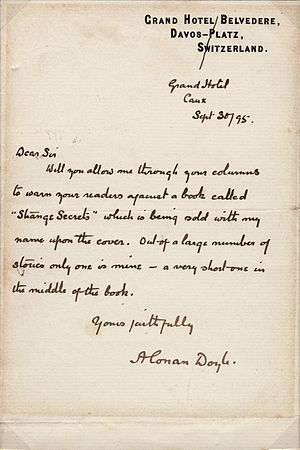 GRAND HOTEL BELVEDERE,
DAVOS-PLATZ,
SWITZERLAND.
Grand Hotel
Caux
Sept 30/95.
Dear Sir
Will you allow me through your columns
to warn your readers against a book called
"Strange Secrets" which is being sold with my
name upon the cover. Out of a large number of
stories only one is mine – a very short one in
the middle of the book.
Yours faithfully
A Conan Doyle.